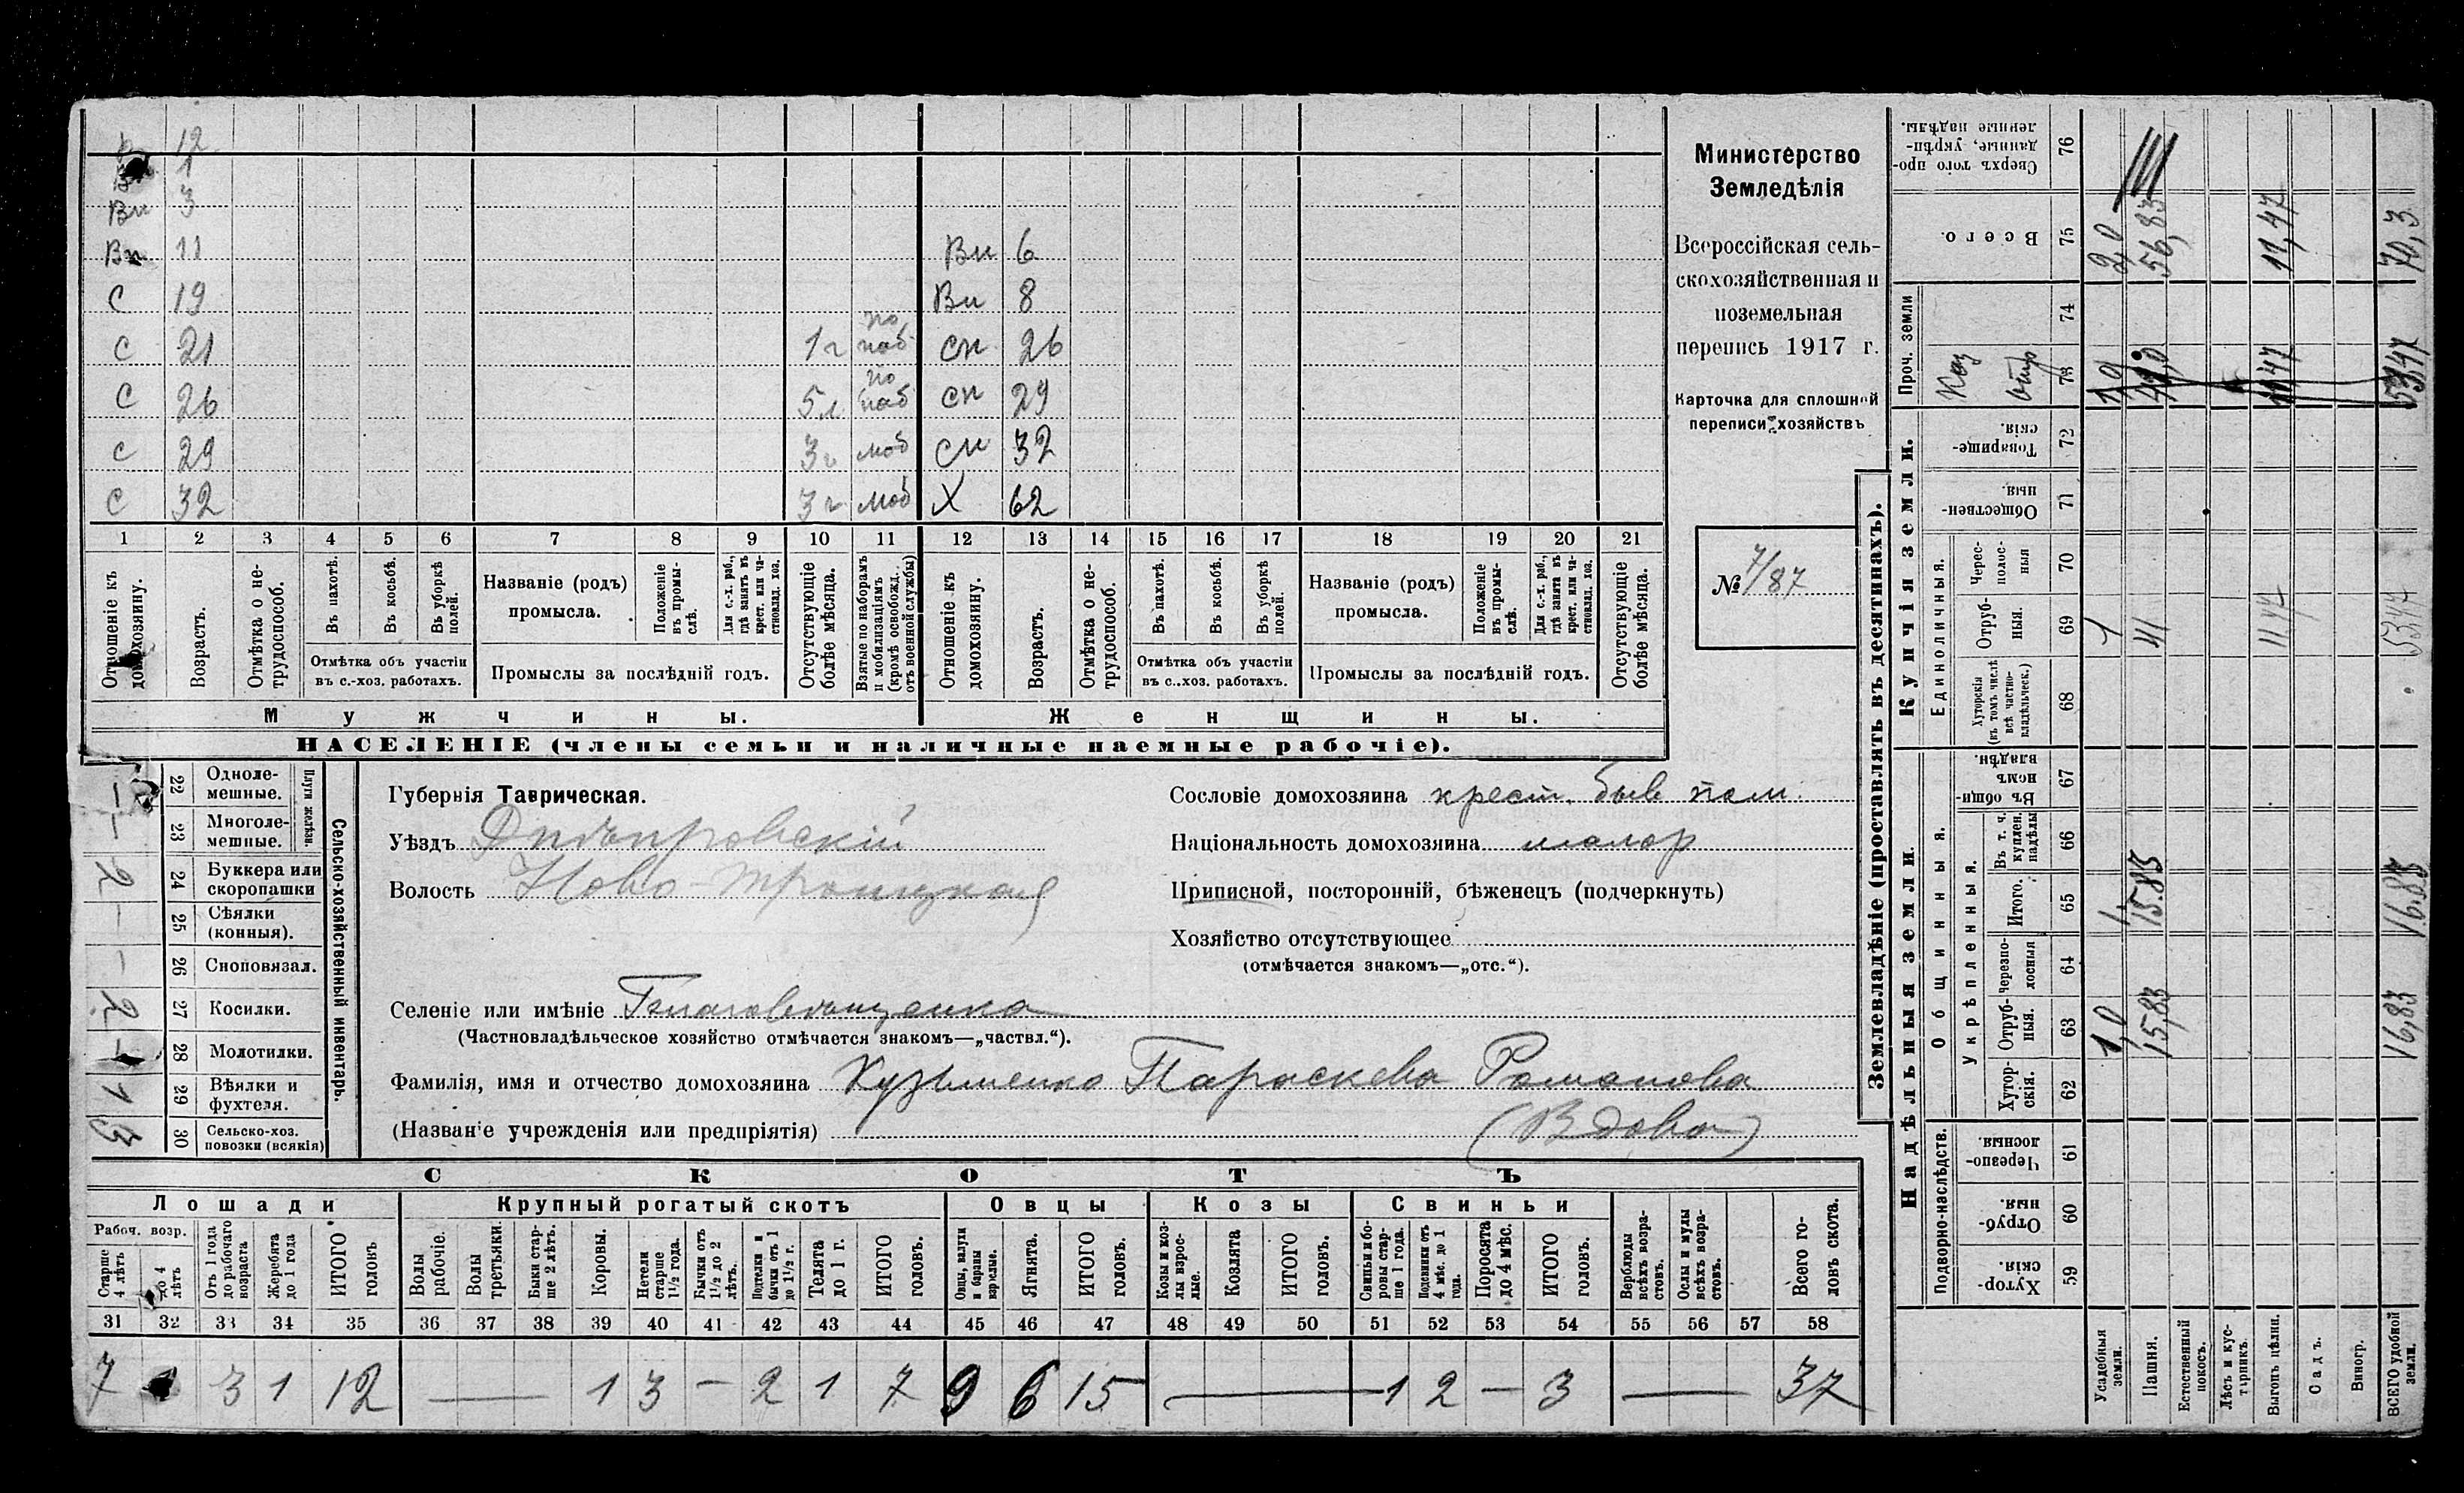 Вн 12
1
Вн 3
Вн 11 Вн 6
С 19 Вн 8
С 21 1 г по наб сн 26
С 26 5 л по наб сн 29
С 29 3 г моб сн 32
С 32 3 г моб Х 62
1 2 3 4 5 6 7 8 9 10 11 12 13 14 15 16 17 18 19 20 21
Отношеніе къ домохозяину.
Возрастъ.
Отмѣтка о не-трудоспособ.
Въ пахотѣ.
Въ косьбѣ.
Въ уборкѣ полей.
Отмѣтка объ участіи
въ с.-хоз. работахъ.
Названіе (родъ)
промысла.
Положеніе въ промы-слѣ.
Для с.-х. раб., гдѣ занятъ въ крест. или ча-стновлад. хоз.
Промыслы за послѣдній годъ.
Отсутствующіе болѣе мѣсяца.
Взятые по наборамъ и мобилизаціямъ (кромѣ освобожд. отъ военной службы)
Отношеніе къ домохозяину.
Возрастъ.
Отмѣтка о не-трудоспособ.
Въ пахотѣ.
Въ косьбѣ.
Въ уборкѣ полей.
Отмѣтка объ участіи
въ с.-хоз. работахъ.
Названіе (родъ)
промысла.
Положеніе въ промы-слѣ.
Для с.-х. раб., гдѣ занята въ крест. или ча-стновлад. хоз.
Промыслы за послѣдній годъ.
Отсутствующіе болѣе мѣсяца.
Мужчины. Женщины.
НАСЕЛЕНІЕ (члены семьи и наличные наемные рабочіе).
Министерство
Земледѣлія
Всероссійская сель-
скохозяйственная и
поземельная
перепись 1917 г.
Карточка для сплошной
переписи хозяйствъ
№ 7/87
Сельско-хозяйственный инвентарь.
Плуги желѣзн.
22 Одноле-мешные. —
23 Многоле-мешные. —
24 Буккера или скоропашки 2
25 Сѣялки (конныя). —
26 Сноповязал. —
27 Косилки. 2
28 Молотилки. —
29 Вѣялки и фухтеля. 1
30 Сельско-хоз. повозки (всякія) 3
Губернія Таврическая.
Уѣздъ Днѣпровскій
Волость Ново-Троицкая
Селеніе или имѣніе Благовѣщенка
(Частновладѣльческое хозяйство отмѣчается знакомъ—„частвл.“).
Фамилія, имя и отчество домохозяина Кузьменко Параскева Романова
(Названіе учрежденія или предпріятія) (Вдова)
Сословіе домохозяина крест. быв пом.
Національность домохозяина малор
Приписной, посторонній, бѣженецъ (подчеркнуть)
Хозяйство отсутствующее
(отмѣчается знакомъ—„отс.“).
СКОТЪ
Лошади Крупный рогатый скотъ Овцы Козы Свиньи
Рабоч. возр.
Старше 4 лѣтъ
до 4 лѣтъ
Отъ 1 года до рабочаго возраста
Жеребята до 1 года
ИТОГО головъ
Волы рабочіе.
Волы третьяки.
Быки стар-ше 2 лѣтъ.
Коровы.
Нетели старше 1½ года.
Бычки отъ 1½ до 2 лѣтъ.
Подтелки и бычки отъ 1 до 1½ г.
Телята до 1 г.
ИТОГО головъ.
Овцы, валухи и бараны взрослые.
Ягнята.
ИТОГО головъ.
Козы и коз-лы взрос-лые.
Козлята
ИТОГО головъ.
Свиньи и бо-ровы стар-ше 1 года.
Подсвинки отъ 4 мѣс. до 1 года.
Поросята до 4 мѣс.
ИТОГО головъ.
Верблюды всѣхъ возра-стовъ.
Ослы и мулы всѣхъ возра-стовъ.
Всего го-ловъ скота.
31 32 33 34 35 36 37 38 39 40 41 42 43 44 45 46 47 48 49 50 51 52 53 54 55 56 57 58
7 1 3 1 12 — 1 3 — 2 1 7 9 6 15 — 1 2 — 3 — 37
Землевладѣніе (проставлять въ десятинахъ).
Надѣльныя земли.
Купчія земли.
Проч. земли
Подворно-наслѣдств.
Общинныя.
Укрѣпленныя.
Единоличныя.
59 Хутор-скія.
60 Отруб-ныя.
61 Черезпо-лосныя.
62 Хутор-скія.
63 Отруб-ныя. 1,0 15,83 16,83
64 Черезпо-лосныя
65 Итого. 1, 15.83 16,83
66 Въ т. ч. куплен. надѣлы
67 Въ общи-номъ владѣн.
68 Хуторскія (въ томъ числѣ всѣ частно-владѣльческ.)
69 Отруб-ныя. 1 41 11,47 53,47
70 Черес-полос-ныя
71 Обществен-ныя.
72 Товарище-скія.
73 отр 1,0 41,0 11,47 53,47
74
75 Всего. 2,0 56,83 11,47 70,3
76 Сверхъ того про-данные, укрѣп-ленные надѣлы.
Усадебныя земли.
Пашня.
Естественный покосъ.
Лѣсъ и кус-тарникъ.
Выгонъ цѣлин.
Садъ.
Виногр.
ВСЕГО удобной земли.